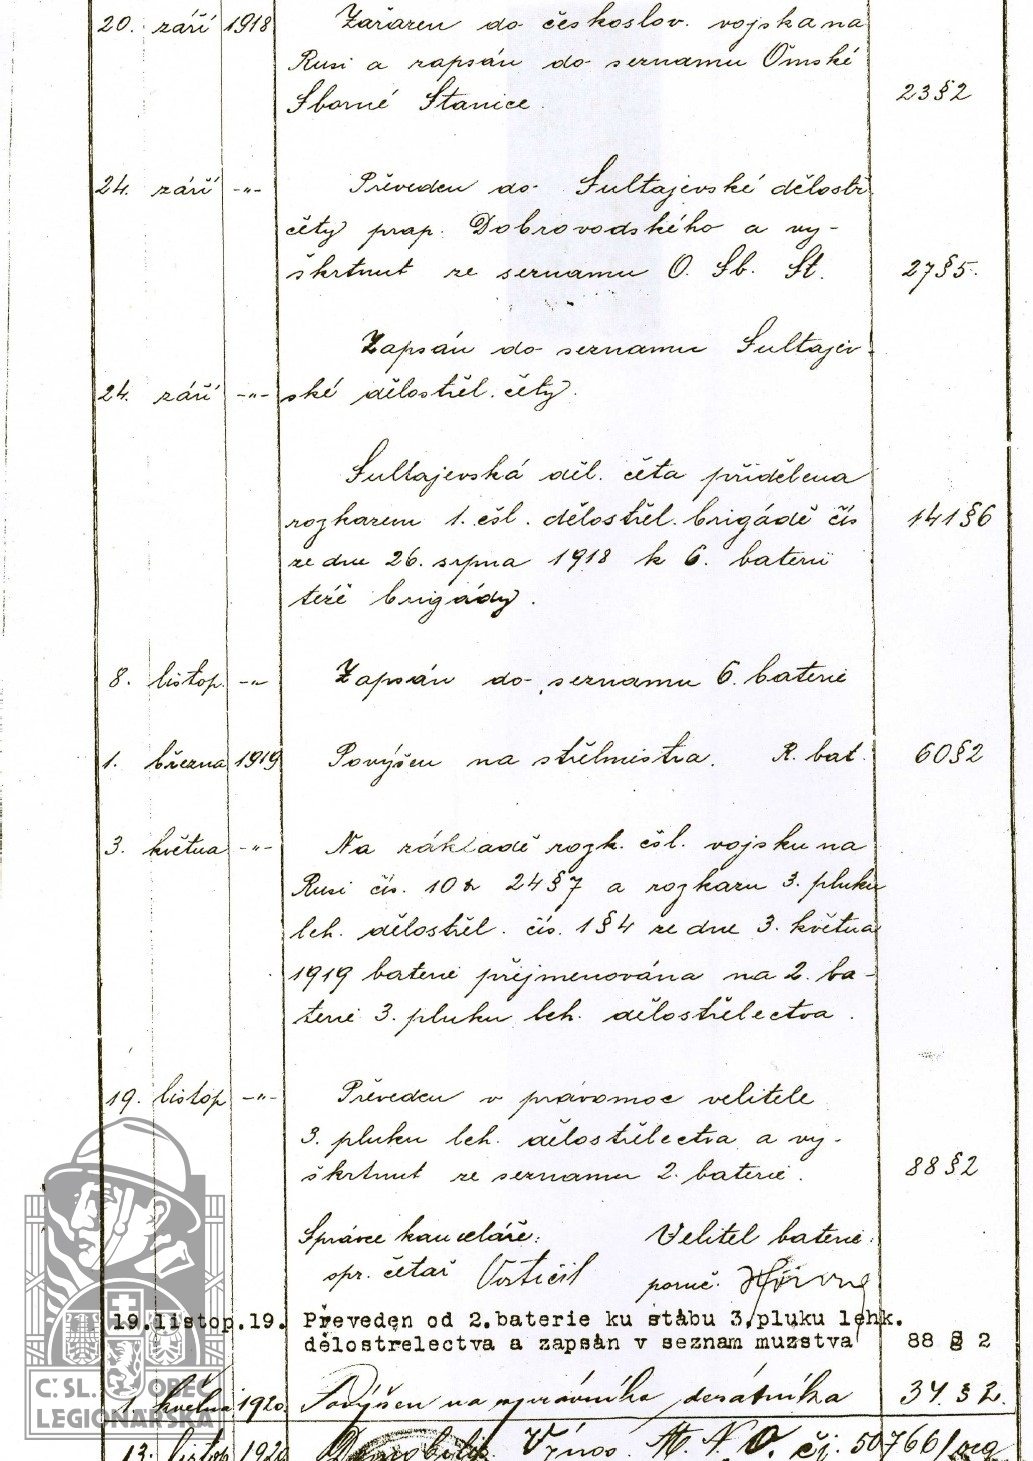 20. září 1918 Zařazen do českoslov. vojska na
Rusi a zapsán do seznamu Omské
Sborné Stanice. 23 § 2
24. září -"- Převeden do Sultajevské dělostř.
čety prap. Dobrovodského a vy-
škrtnut ze seznamu O. Sb. St. 27 § 5.
Zapsán do seznamu Sultajev-
24. září -"- ské dělostřel. čety.
Sultajevská děl. četa přidělena
rozkazem 1. čsl. dělostřel. brigádě čís 141 § 6
ze dne 26. srpna 1918 k 6. baterii
téže brigády.
8. listop. -"- Zapsán do seznamu 6. baterie
1. března 1919 Povýšen na střelmistra. R. bat. 60 § 2
3. května -"- Na základě rozk. čsl. vojsku na
Rusi čís. 24 § 7 a rozkazu 3. pluku
leh. dělostřel. čís. 1 § 4 ze dne 3. května
1919 baterie přejmenována na 2. ba-
terii 3. pluku leh. dělostřelectva.
19. listop -"- Převeden v právomoc velitele
3. pluku leh. dělostřelectva a vy-
škrtnut ze seznamu 2. baterie. 88 § 2
Správce kanceláře: Velitel baterie:
spr. četař poruč.
19.listop.19. Převeden od 2.baterie ku stábu 3.pluku lehk.
dělostrelectva a zapsán v seznam muzstva 88 § 2
1. května 1920. Povýšen na správního desátníka 34. § 2.
13. listop 1920 Výnos. M. N. O. čj. 50766/
Č. SL. OBEC
LEGIONÁŘSKÁ